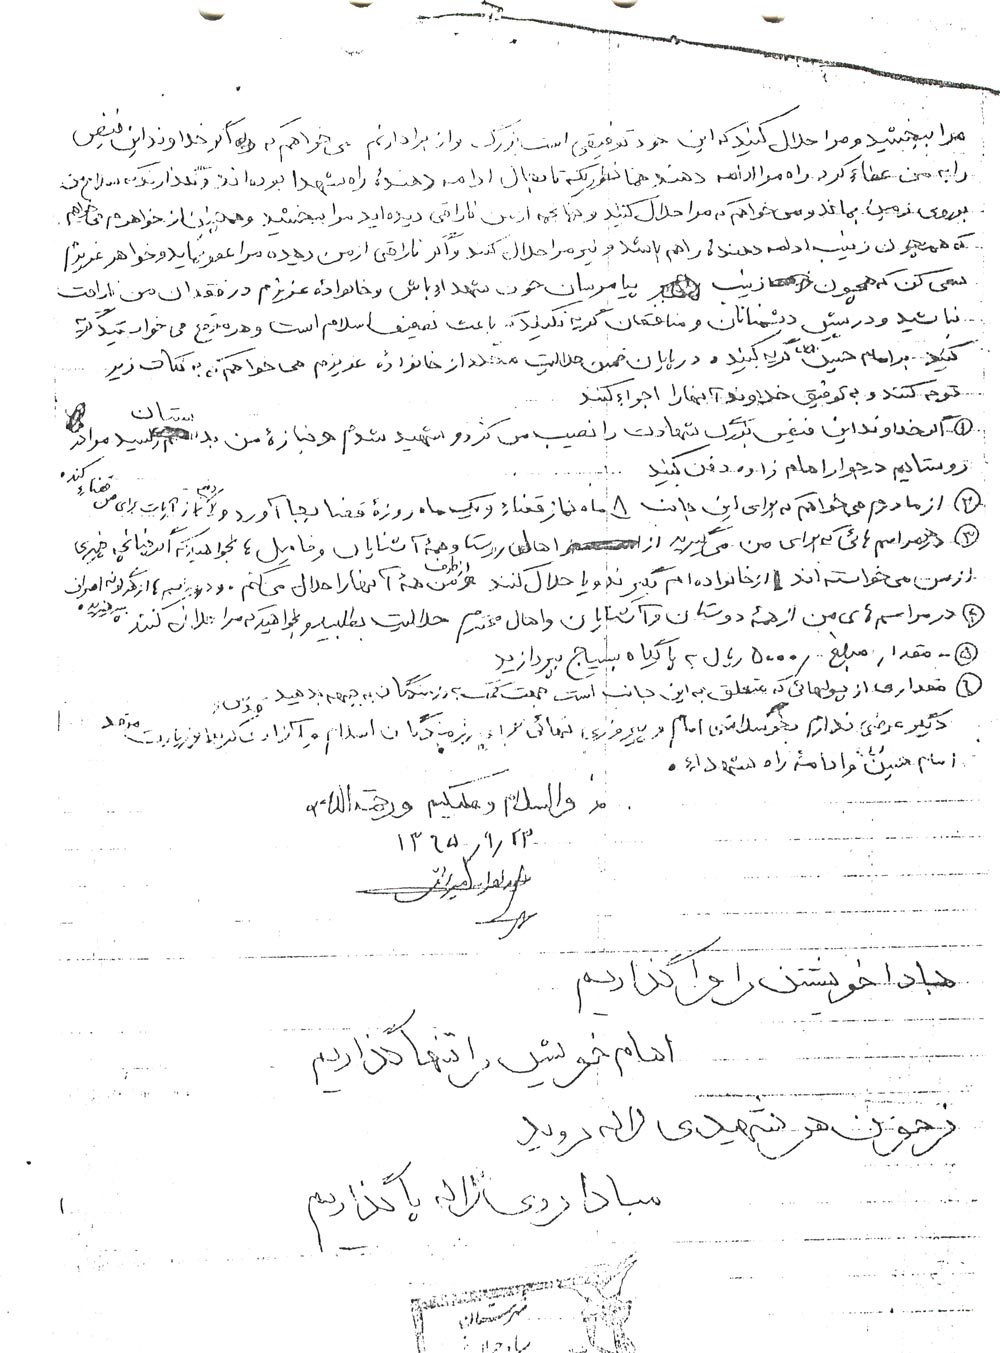 مرا ببخشید و مرا حلال کنید که این خود توفیقی است بزرگ و از برادرانم می خواهم که اگر خداوند این فیض
را به من عطاء کرد راه مرا ادامه دهند همانطوریکه تا بحال ادامه دهندهٔ راه شهدا بوده اند و نگذارند که سلاح من
بر روی زمین بماند و می خواهم که مرا حلال کنند و چنانچه از من ناراحتی دیده اید مرا ببخشید و همچنین از خواهرم می خواهم
که همچون زینب ادامه دهندهٔ راهم باشد و نیز مرا حلال کند و اگر ناراحتی از من دیده مرا عفو نماید و خواهر عزیزم
سعی کن که همچون زینب پیام رسان خون شهداء باش و خانوادهٔ عزیزم در فقدان من ناراحت
نباشید و در پیش دشمنان و منافقان گریه نکنید که باعث تضعیف اسلام است و هر موقع می خواستید گریه
کنید بر امام حسین گریه کنید و در پایان ضمن حلالیت مجدد از خانوادهٔ عزیزم می خواهم که به نکات زیر
توجه کنند و به توفیق خداوند آنها را اجراء کنند
۱ اگر خداوند این فیض بزرگ شهادت را نصیب من کرد و شهید شدم و جنازهٔ من بدستتان رسید مرا در
روستایم در جوار امام زاده دفن کنید
۲ از مادرم می خواهم که برای این جانب ۸ ماه نماز قضاء و یک ماه روزهٔ قضا بجا آورد و نماز آیات برای من قضاء کند.
۳ در مراسم هائی که برای من می گیرید از اهالی روستا و همهٔ آشنایان و فامیل ها بخواهید که اگر چنانچه چیزی
از من می خواسته اند از خانواده ام بگیرند و یا حلال کنند و از طرف من همهٔ آنها را حلال می کنم
۴ در مراسم های من از همهٔ دوستان و آشنایان و اهال محترم حلالیت بطلبید و بخواهید که مرا حلال کنند
۵ - مقدار مبلغ ۵۰۰۰ ریال به پایگاه بسیج بپردازید
۶ مقداری از پولهائی که متعلق به این جانب است جهت کمک به رزمندگان به جبهه بدهید
دیگر عرضی ندارم بجز سلامتی امام و پیروزی نهائی برای رزمندگان اسلام و آزادی کربلا و زیارت مرقد
امام حسین و ادامهٔ راه شهداء.
والسلام و علیکم و رحمة الله
۱۳۶۵/۹/۲۳
مبادا خویشتن را واگذاریم
امام خویش را تنها گذاریم
زخون هر شهیدی لاله روید
مبادا روی لاله پا گذاریم